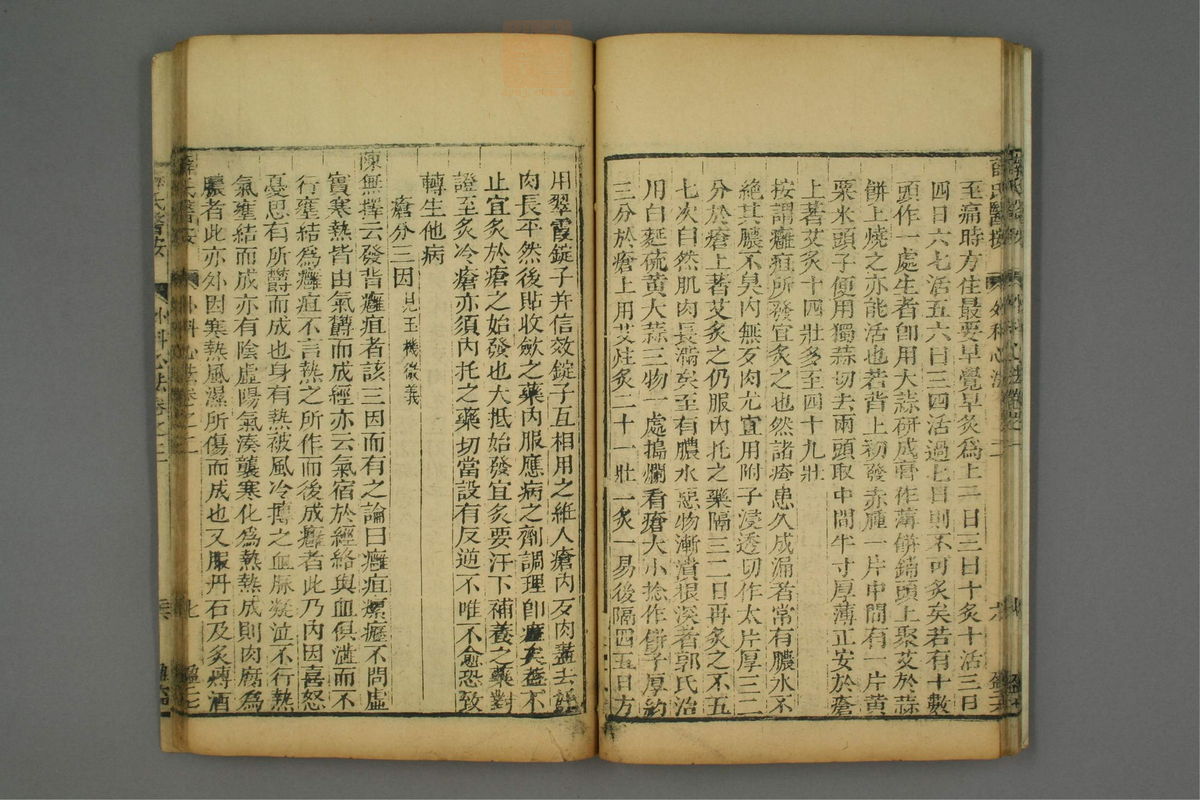 至痛時方住最要早覺早灸爲上一日三日十灸十活三日
四日六七活五六日三四活過七日則不可灸矣若有十數
頭作一處生者卽用大蒜研成膏作薄餅鋪頭上聚艾於蒜
餅上燒之亦能活也若背上初發赤腫一片中間有一片黃
粟米頭子便用獨蒜切去兩頭取中間半寸厚薄正安於瘡
上著艾灸十四壯多至四十九壯
按謂癰疽所發宜灸之也然諸瘡患久成漏者常有膿水不
絶其膿不臭內無歹肉尤宜用附子浸透切作大片厚三二
分於瘡上著艾灸之仍服內托之藥隔三二日再灸之不五
七次自然肌肉長滿矣至有膿水惡物漸潰根深者郭氏治
用白麪硫黃大蒜三物一處搗爛看瘡大小捻作餅子厚約
三分於瘡上用艾炷灸二十一壯一灸一易後隔四五日方
用翠霞錠子并信效錠子互相用之維人瘡內歹肉盡去
肉長平然後貼收斂之藥內服應病之劑調理卽矣蓋不
止宜灸於瘡之始發也大抵始發宜灸要汗下補養之藥對
證至灸冷瘡亦須內托之藥切當設有反逆不唯不愈恐致
轉生他病
瘡分三因 見玉機微義
陳無擇云發背癰疽者該三因而有之論曰癰疽瘰癧不問虛
實寒熱皆由氣鬱而成經亦云氣宿於經絡與血俱澁而不
行壅結爲癰疽不言熱之所作而後成癰者此乃內因喜怒
憂思有所鬱而成也身有熱被風冷搏之血脉凝泣不行熱
氣壅結而成亦有陰虛陽氣湊襲寒化爲熱熱成則肉腐爲
膿者此亦外因寒熱風濕所傷而成也又服丹石及炙煿酒
薛氏醫按 外科心法卷之二